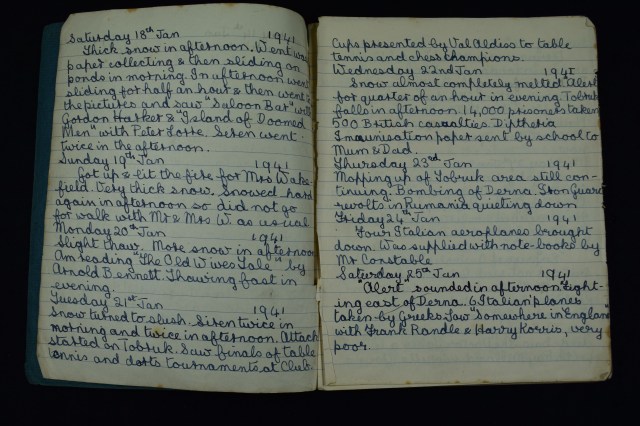 Saturday 18th Jan 1941
Thick snow in afternoon. Went
paper collecting & then sliding on
ponds in morning. In afternoon went
sliding for half an hour & then went to
the pictures and saw "Saloon Bar" with
Gordon Harker & "Island of Doomed
Men" with Peter Lorre. Siren went
twice in the afternoon.
Sunday 19th Jan 1941
Got up & lit the fire for Mrs Wake-
field. Very thick snow. Snowed hard
again in afternoon so did not go
for walk with Mr & Mrs W. as usual
Monday 20th Jan 1941
Slight thaw. More snow in afternoon
Am reading "The Old Wives Tale" by
Arnold Bennett. Thawing fast in
evening.
Tuesday 21st Jan 1941
Snow turned to slush. Siren twice in
morning and twice in afternoon. Attack
started on Tobruk. Saw finals of table
tennis and darts tournaments at Club.
Cups presented by Val Aldiss to table
tennis and chess champions.
Wednesday 22nd Jan 1941
Snow almost completely melted. Alert
for quarter of an hour in evening. Tobruk
falls in afternoon. 14,000 prisoners taken
500 British casualties. Diptheria
Immunisation paper sent by school to
Mum & Dad.
Thursday 23rd Jan 1941
Mopping up of Tobruk area still con-
tinuing. Bombing of Derna. Iron Guard
revolts in Rumania quieting down
Friday 24th Jan 1941
Four Italian aeroplanes brought
down. Was supplied with note-books by
Mr Constable
Saturday 25th Jan 1941
"Alert" sounded in afternoon. Fight-
ing east of Derna. 6 Italian planes
taken by Greeks. Saw "Somewhere in England"
with Frank Randle & Harry Korris, very
poor.